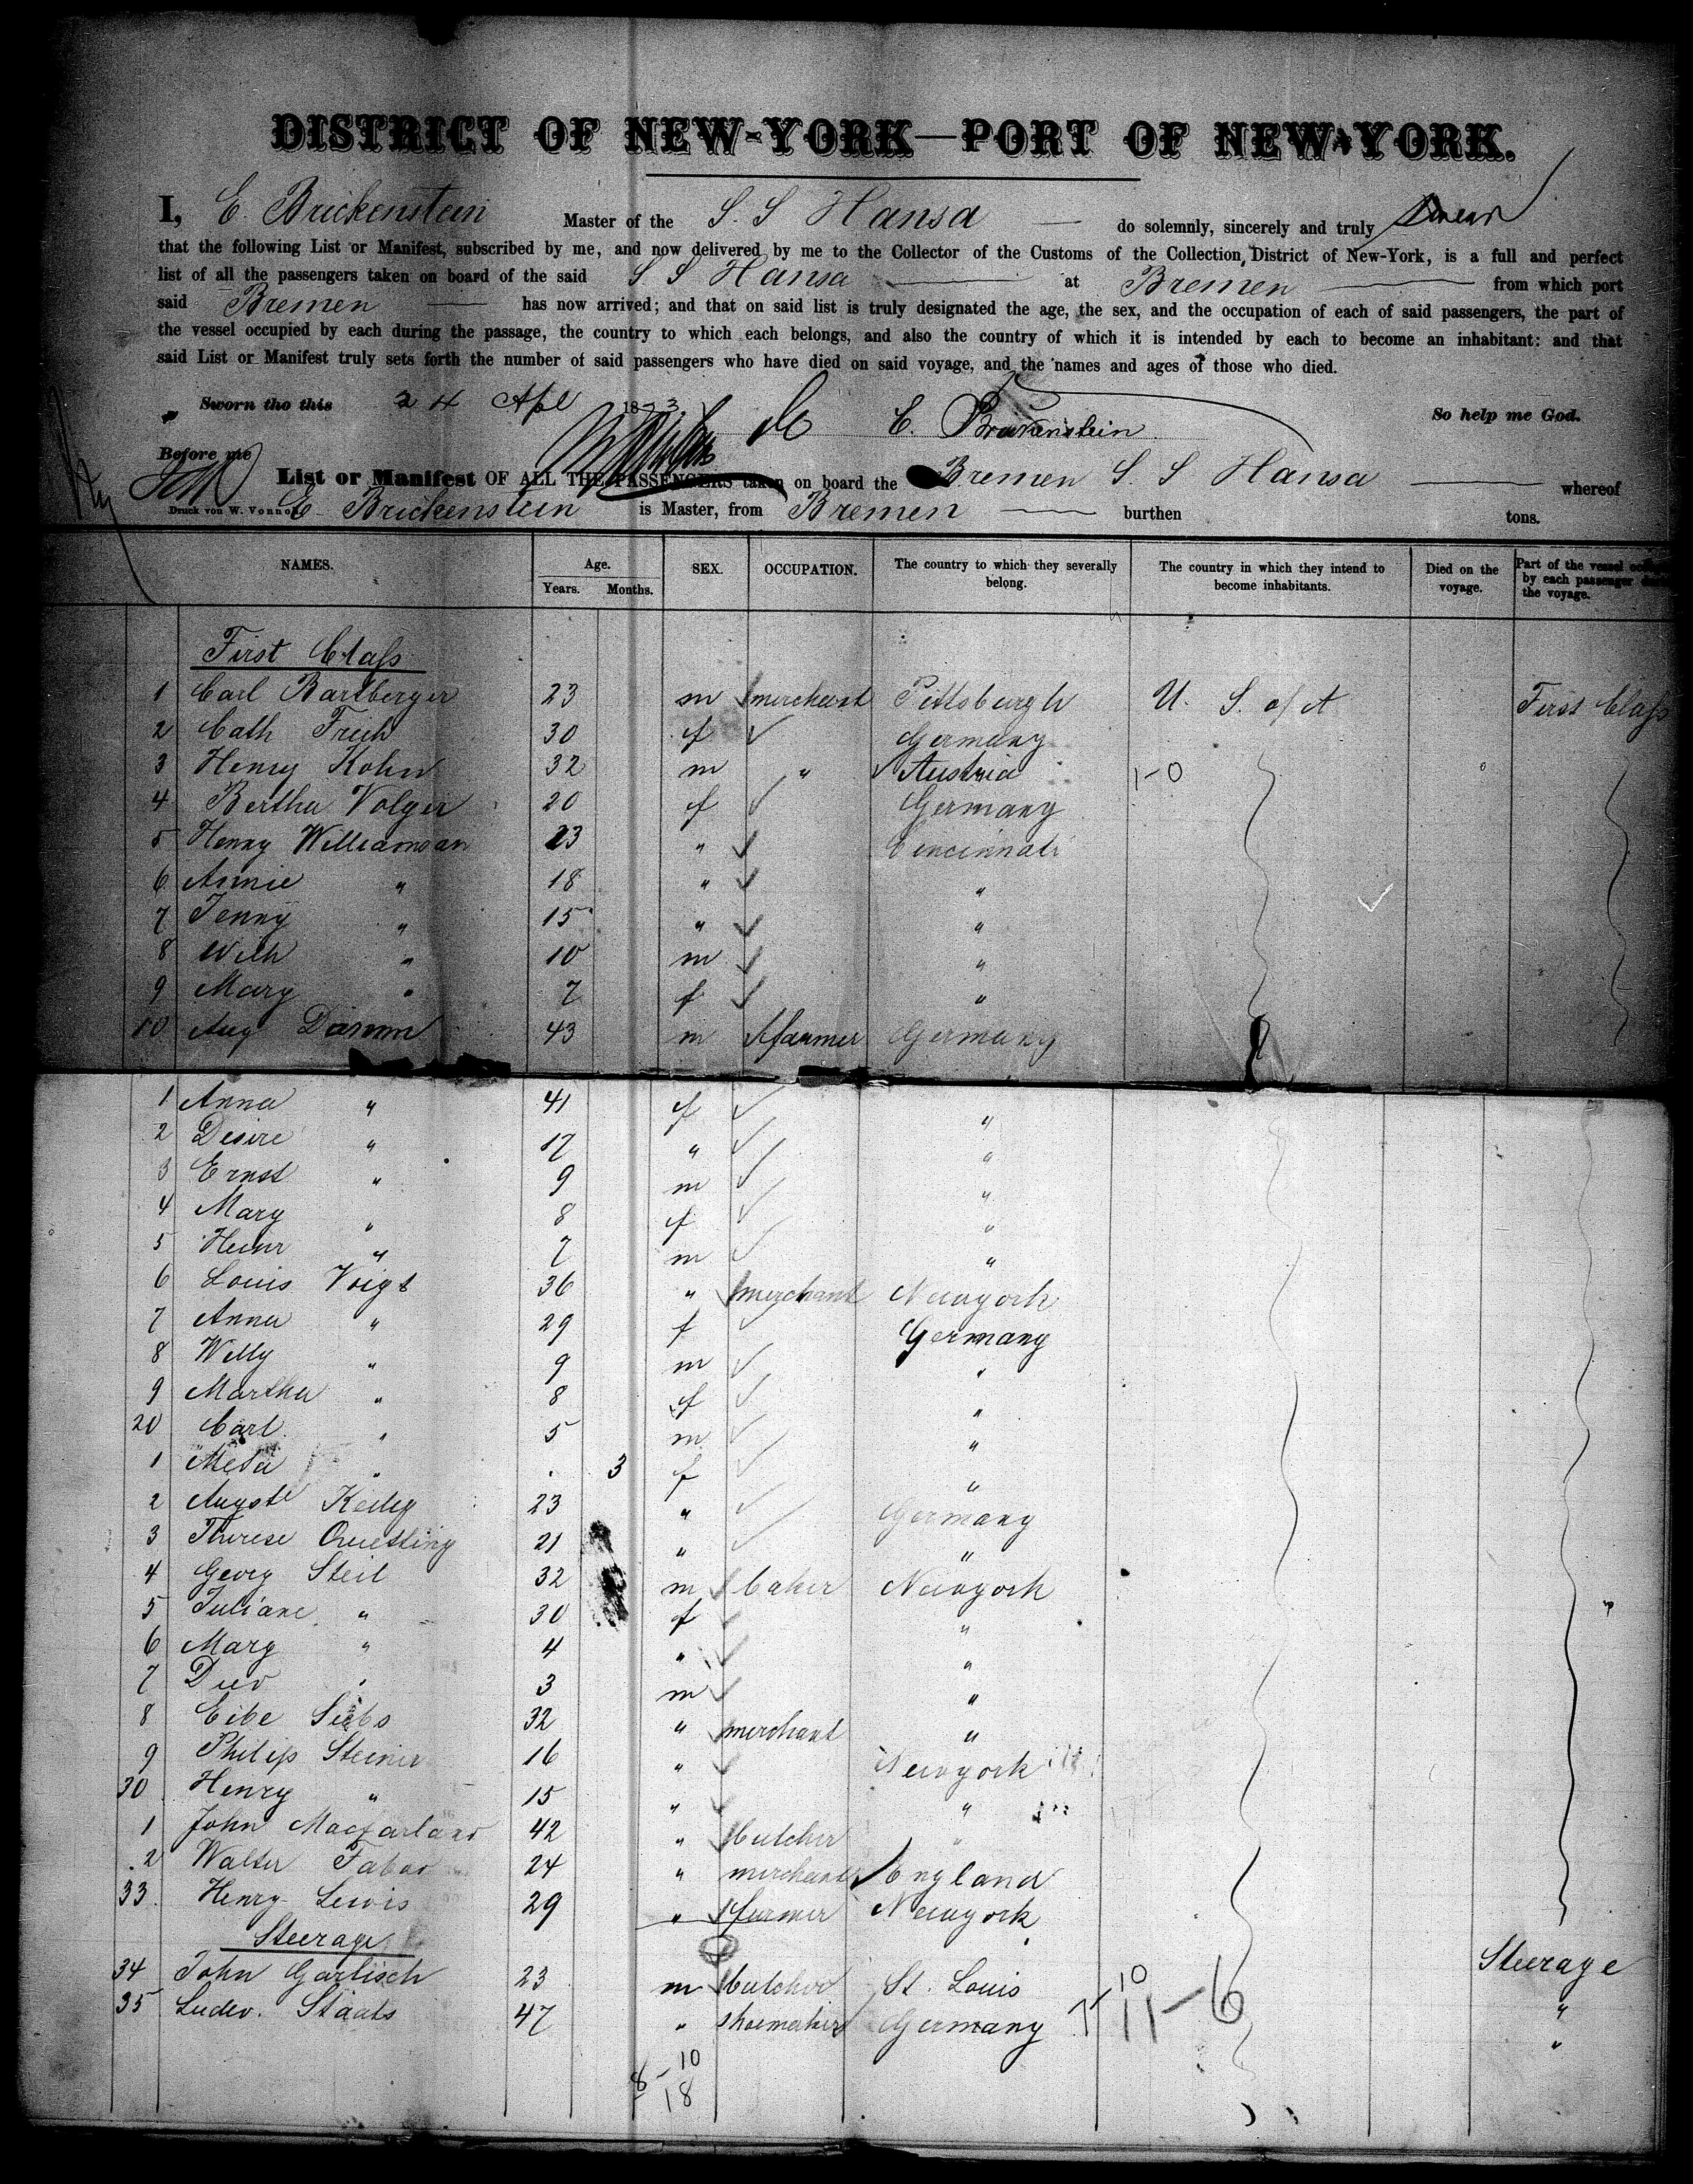 DISTRICT OF NEW-YORK—PORT OF NEW-YORK.
I, E. Brickenstein Master of the S. S Hansa — do solemnly, sincerely and truly swear
that the following List or Manifest, subscribed by me, and now delivered by me to the Collector of the Customs of the Collection District of New-York, is a full and perfect
list of all the passengers taken on board of the said S S Hansa at Bremen from which port
said Bremen has now arrived; and that on said list is truly designated the age, the sex, and the occupation of each of said passengers, the part of
the vessel occupied by each during the passage, the country to which each belongs, and also the country of which it is intended by each to become an inhabitant: and that
said List or Manifest truly sets forth the number of said passengers who have died on said voyage, and the names and ages of those who died.
Sworn tho this 24 Apl 1873 E. Brickenstein So help me God.
Before me
List or Manifest OF ALL THE PASSENGERS taken on board the Bremen S. S Hansa whereof
Druck von W. Vonnoh
E Brickenstein is Master, from Bremen burthen tons.
NAMES. Age. Years. Months. SEX. OCCUPATION. The country to which they severally belong. The country in which they intend to become inhabitants. Died on the voyage. Part of the vessel by each passenger the voyage.
First Class
1 Carl Bartberger 23 m merchant Pittsburgh U. S. of A First Class
2 Cath 30 f Germany
3 Henry Kohn 32 m " Austria 1-0
4 Bertha Volger 20 f Germany
5 Henny Williamson 23 " Cincinnati
6 Annie " 18 " "
7 Jenny " 15 " "
8 Wilh " 10 m "
9 Mary " 7 f "
10 Aug Damm 43 m farmer Germany
1 Anna " 41 f "
2 Desire " 17 " "
3 Ernst " 9 m "
4 Mary " 8 f "
5 Heinr " 7 m "
6 Louis Voigt 36 " merchant Newyork
7 Anna " 29 f Germany
8 Willy " 9 m "
9 Martha " 8 f "
20 Carl " 5 m "
1 Meta " . 3 f "
2 Auguste 23 " Germany
3 Therese 21 " "
4 Georg Steil 32 m baker Newyork
5 Juliane " 30 f "
6 Mary " 4 " "
7 " 3 m "
8 Eibe Siebs 32 " merchant "
9 Philip Steiner 16 " Newyork
30 Henry " 15 " "
1 John Macfarland 42 " butcher "
2 Walter Faber 24 " merchant England
33 Henry Lewis 29 " farmer Newyork
Steerage
34 John Garlisch 23 m butcher St. Louis Steerage
35 Ludw. Staats 47 " shoemaker Germany "
10
11-6
"
8-10
18